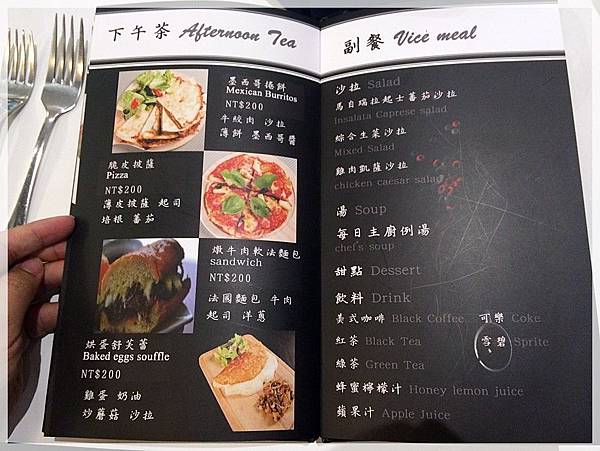 下午茶 Afternoon Tea
墨西哥捲餅
Mexican Burritos
NT$200
牛絞肉 沙拉
薄餅 墨西哥醬
脆皮披薩
Pizza
NT$200
薄皮披薩 起司
培根 蕃茄
燉牛肉軟法麵包
sandwich
NT$200
法國麵包 牛肉
起司 洋蔥
烘蛋舒芙蕾
Baked eggs souffle
NT$200
雞蛋 奶油
炒蘑菇 沙拉
副餐 Vice meal
沙拉 Salad
馬自瑞拉起士蕃茄沙拉
Insalata Caprese salad
綜合生菜沙拉
Mixed Salad
雞肉凱薩沙拉
chicken caesar salad
湯 Soup
每日主廚例湯
chef's soup
甜點 Dessert
飲料 Drink
美式咖啡 Black Coffee 可樂 Coke
紅茶 Black Tea 雪碧 Sprite
綠茶 Green Tea
蜂蜜檸檬汁 Honey lemon juice
蘋果汁 Apple Juice